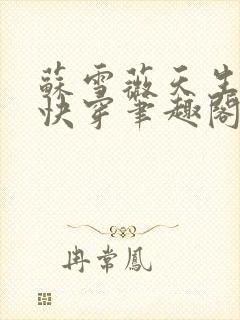 蘇雪薇天生
快穿筆趣閣
冉常鳳